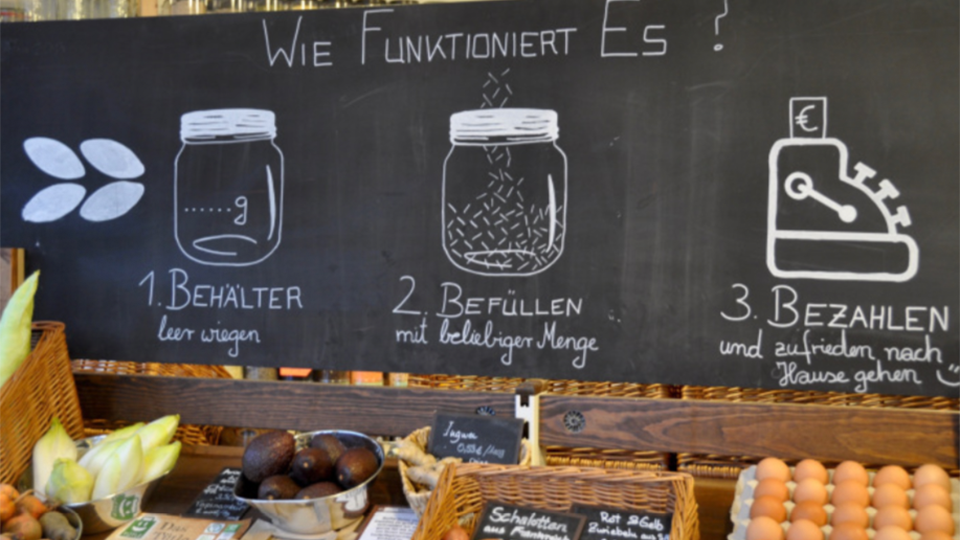 WIE FUNKTIONIERT ES ?
€
...... g
1. BEHÄLTER
leer wiegen
2. BEFÜLLEN
mit beliebiger Menge
3. BEZAHLEN
und zufrieden nach
Hause gehen
Ingwer
Schalotten
aus Frankreich
Rot & Gelb
Zwiebeln
Das